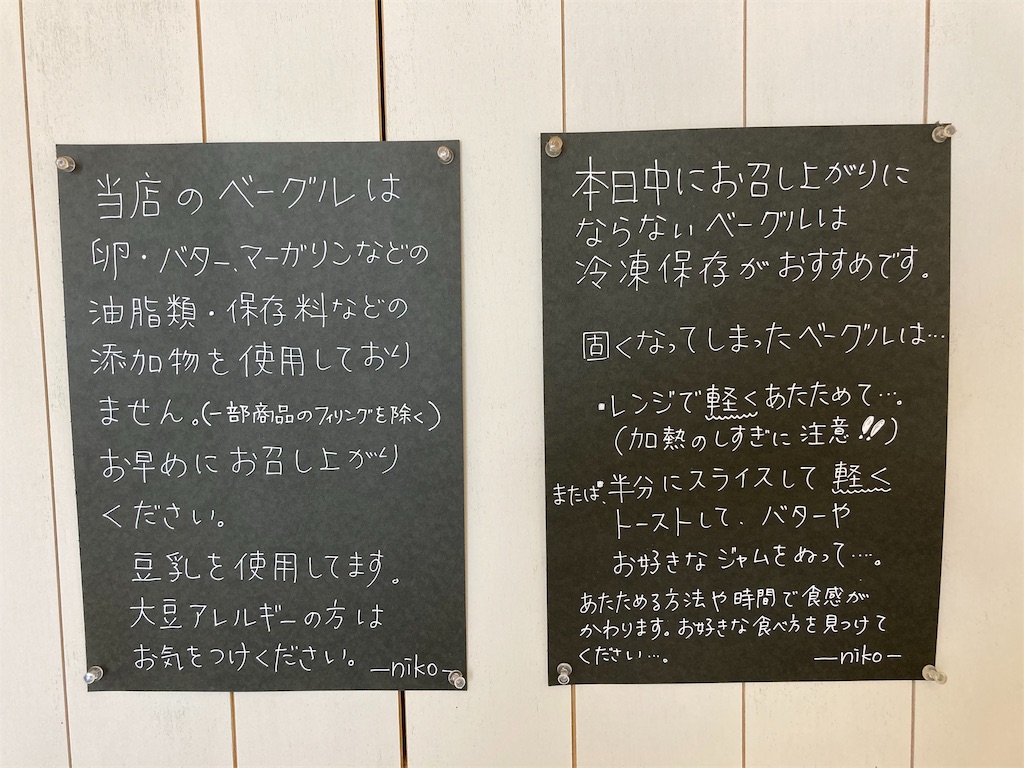 当店のベーグルは
卵・バター、マーガリンなどの
油脂類・保存料などの
添加物を使用しており
ません。(一部商品のフィリングを除く)
お早めにお召し上がり
ください。
豆乳を使用してます。
大豆アレルギーの方は
お気をつけください。
—niko—
本日中にお召し上がりに
ならないベーグルは
冷凍保存がおすすめです。
固くなってしまったベーグルは…
・レンジで軽くあたためて…。
(加熱のしすぎに注意!!)
または・半分にスライスして軽く
トーストして、バターや
お好きなジャムをぬって…。
あたためる方法や時間で食感が
かわります。お好きな食べ方を見つけて
ください…。
—niko—